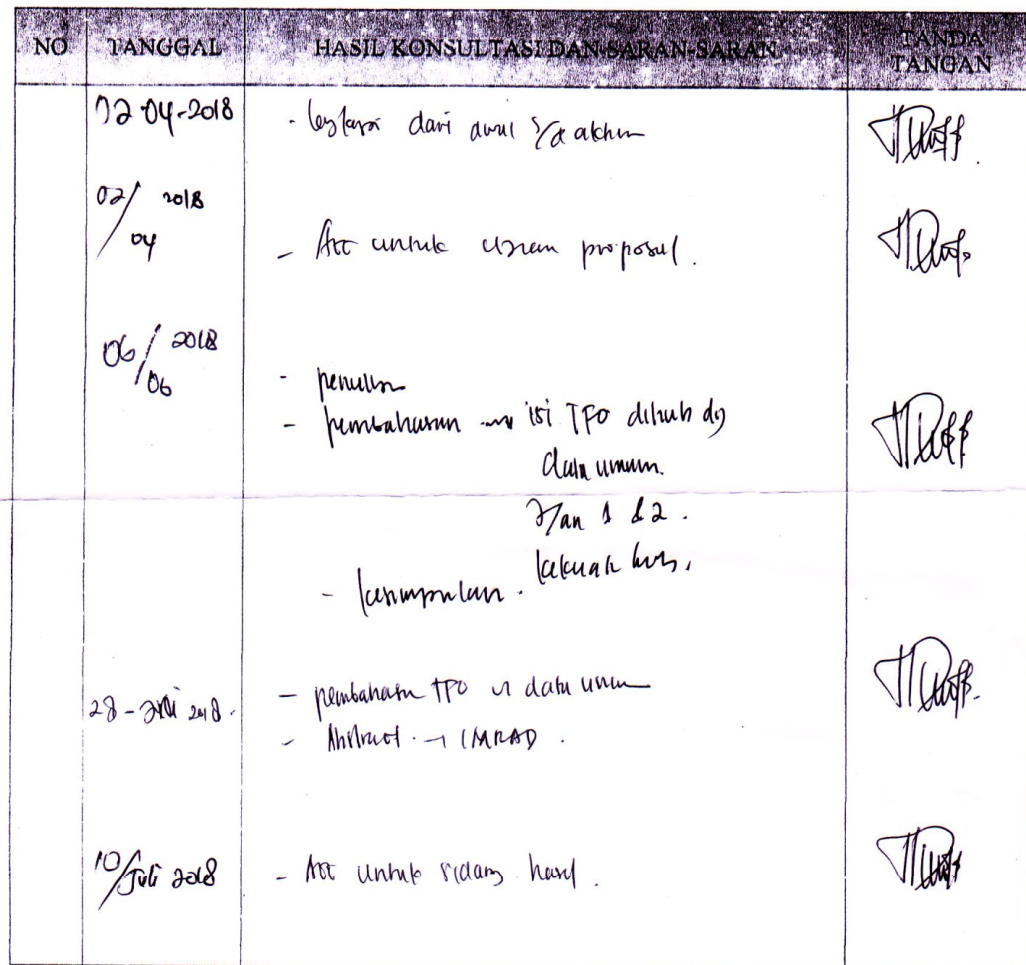 NO TANGGAL HASIL KONSULTASI DAN SARAN-SARAN TANDA TANGAN
02-04-2018 - dari awal s/d akhir
02/04 2018 - Acc untuk ujian proposal.
06/06 2018 - penulisan
- pembahasan isi TFO dihub dg
data umum.
1 & 2.
- kesimpulan.
28 - 2018. - pembahasan TFO data umum
- Abstract. → IMRAD.
10/Juli 2018 - Acc untuk sidang hasil.